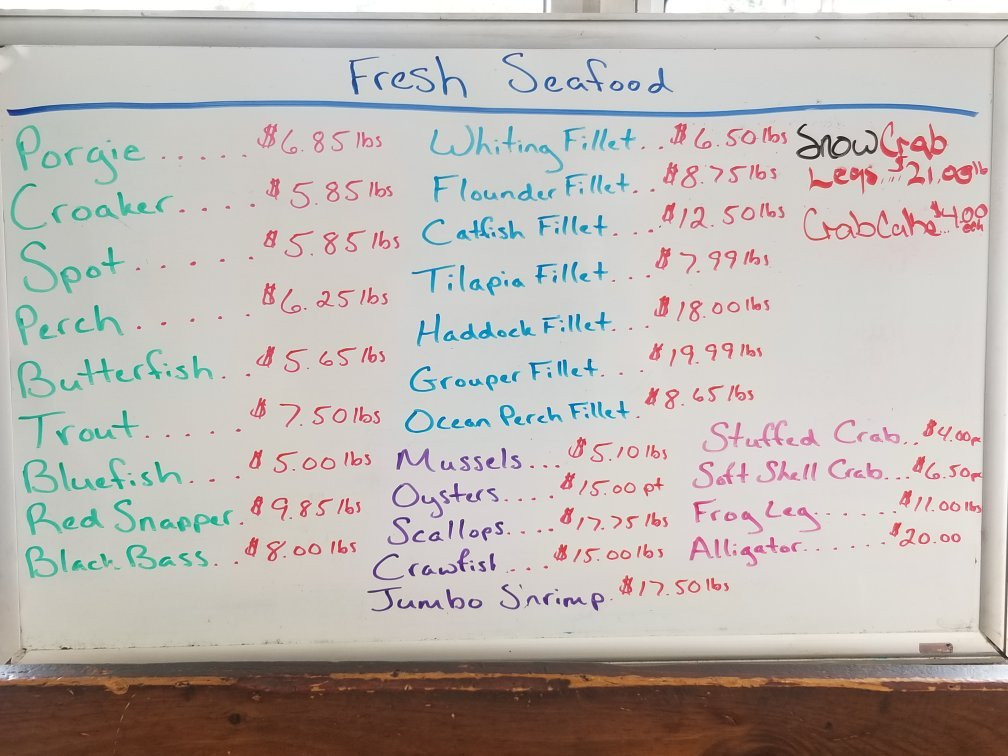 Fresh Seafood
Porgie ..... $6.85 lbs
Croaker .... $5.85 lbs
Spot ...... $5.85 lbs
Perch ..... $6.25 lbs
Butterfish .. $5.65 lbs
Trout ..... $7.50 lbs
Bluefish ... $5.00 lbs
Red Snapper . $9.85 lbs
Black Bass .. $8.00 lbs
Whiting Fillet .. $6.50 lbs
Flounder Fillet .. $8.75 lbs
Catfish Fillet .... $12.50 lbs
Tilapia Fillet ... $7.99 lbs
Haddock Fillet ... $18.00 lbs
Grouper Fillet ... $19.99 lbs
Ocean Perch Fillet . $8.65 lbs
Mussels ... $5.10 lbs
Oysters .... $15.00 pt
Scallops .... $17.75 lbs
Crawfish ... $15.00 lbs
Jumbo Shrimp . $17.50 lbs
Snow Crab
Legs ... $21.00 lb
Crab Cake .. $4.00 each
Stuffed Crab .. $4.00
Soft Shell Crab ... $6.50
Frog Leg ...... $11.00 lbs
Alligator ...... $20.00